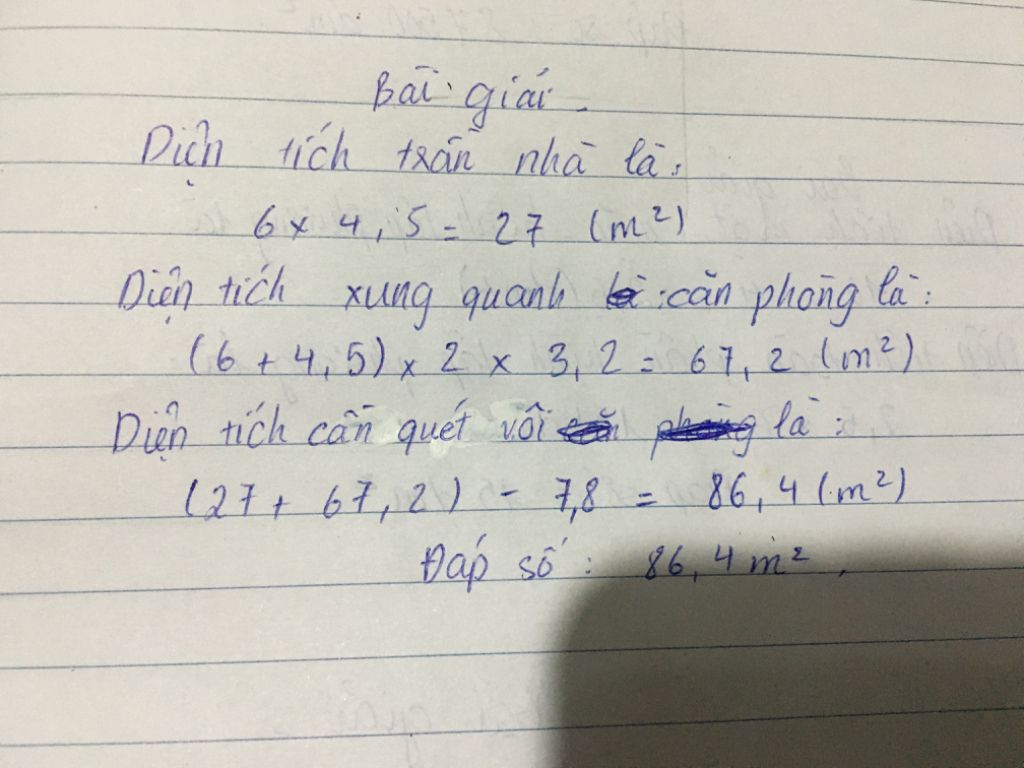 Bài giải.
Diện tích trần nhà là:
6 x 4,5 = 27 (m²)
Diện tích xung quanh căn phòng là:
(6 + 4,5) x 2 x 3,2 = 67,2 (m²)
Diện tích cần quét vôi là:
(27 + 67,2) - 7,8 = 86,4 (m²)
Đáp số: 86,4 m².